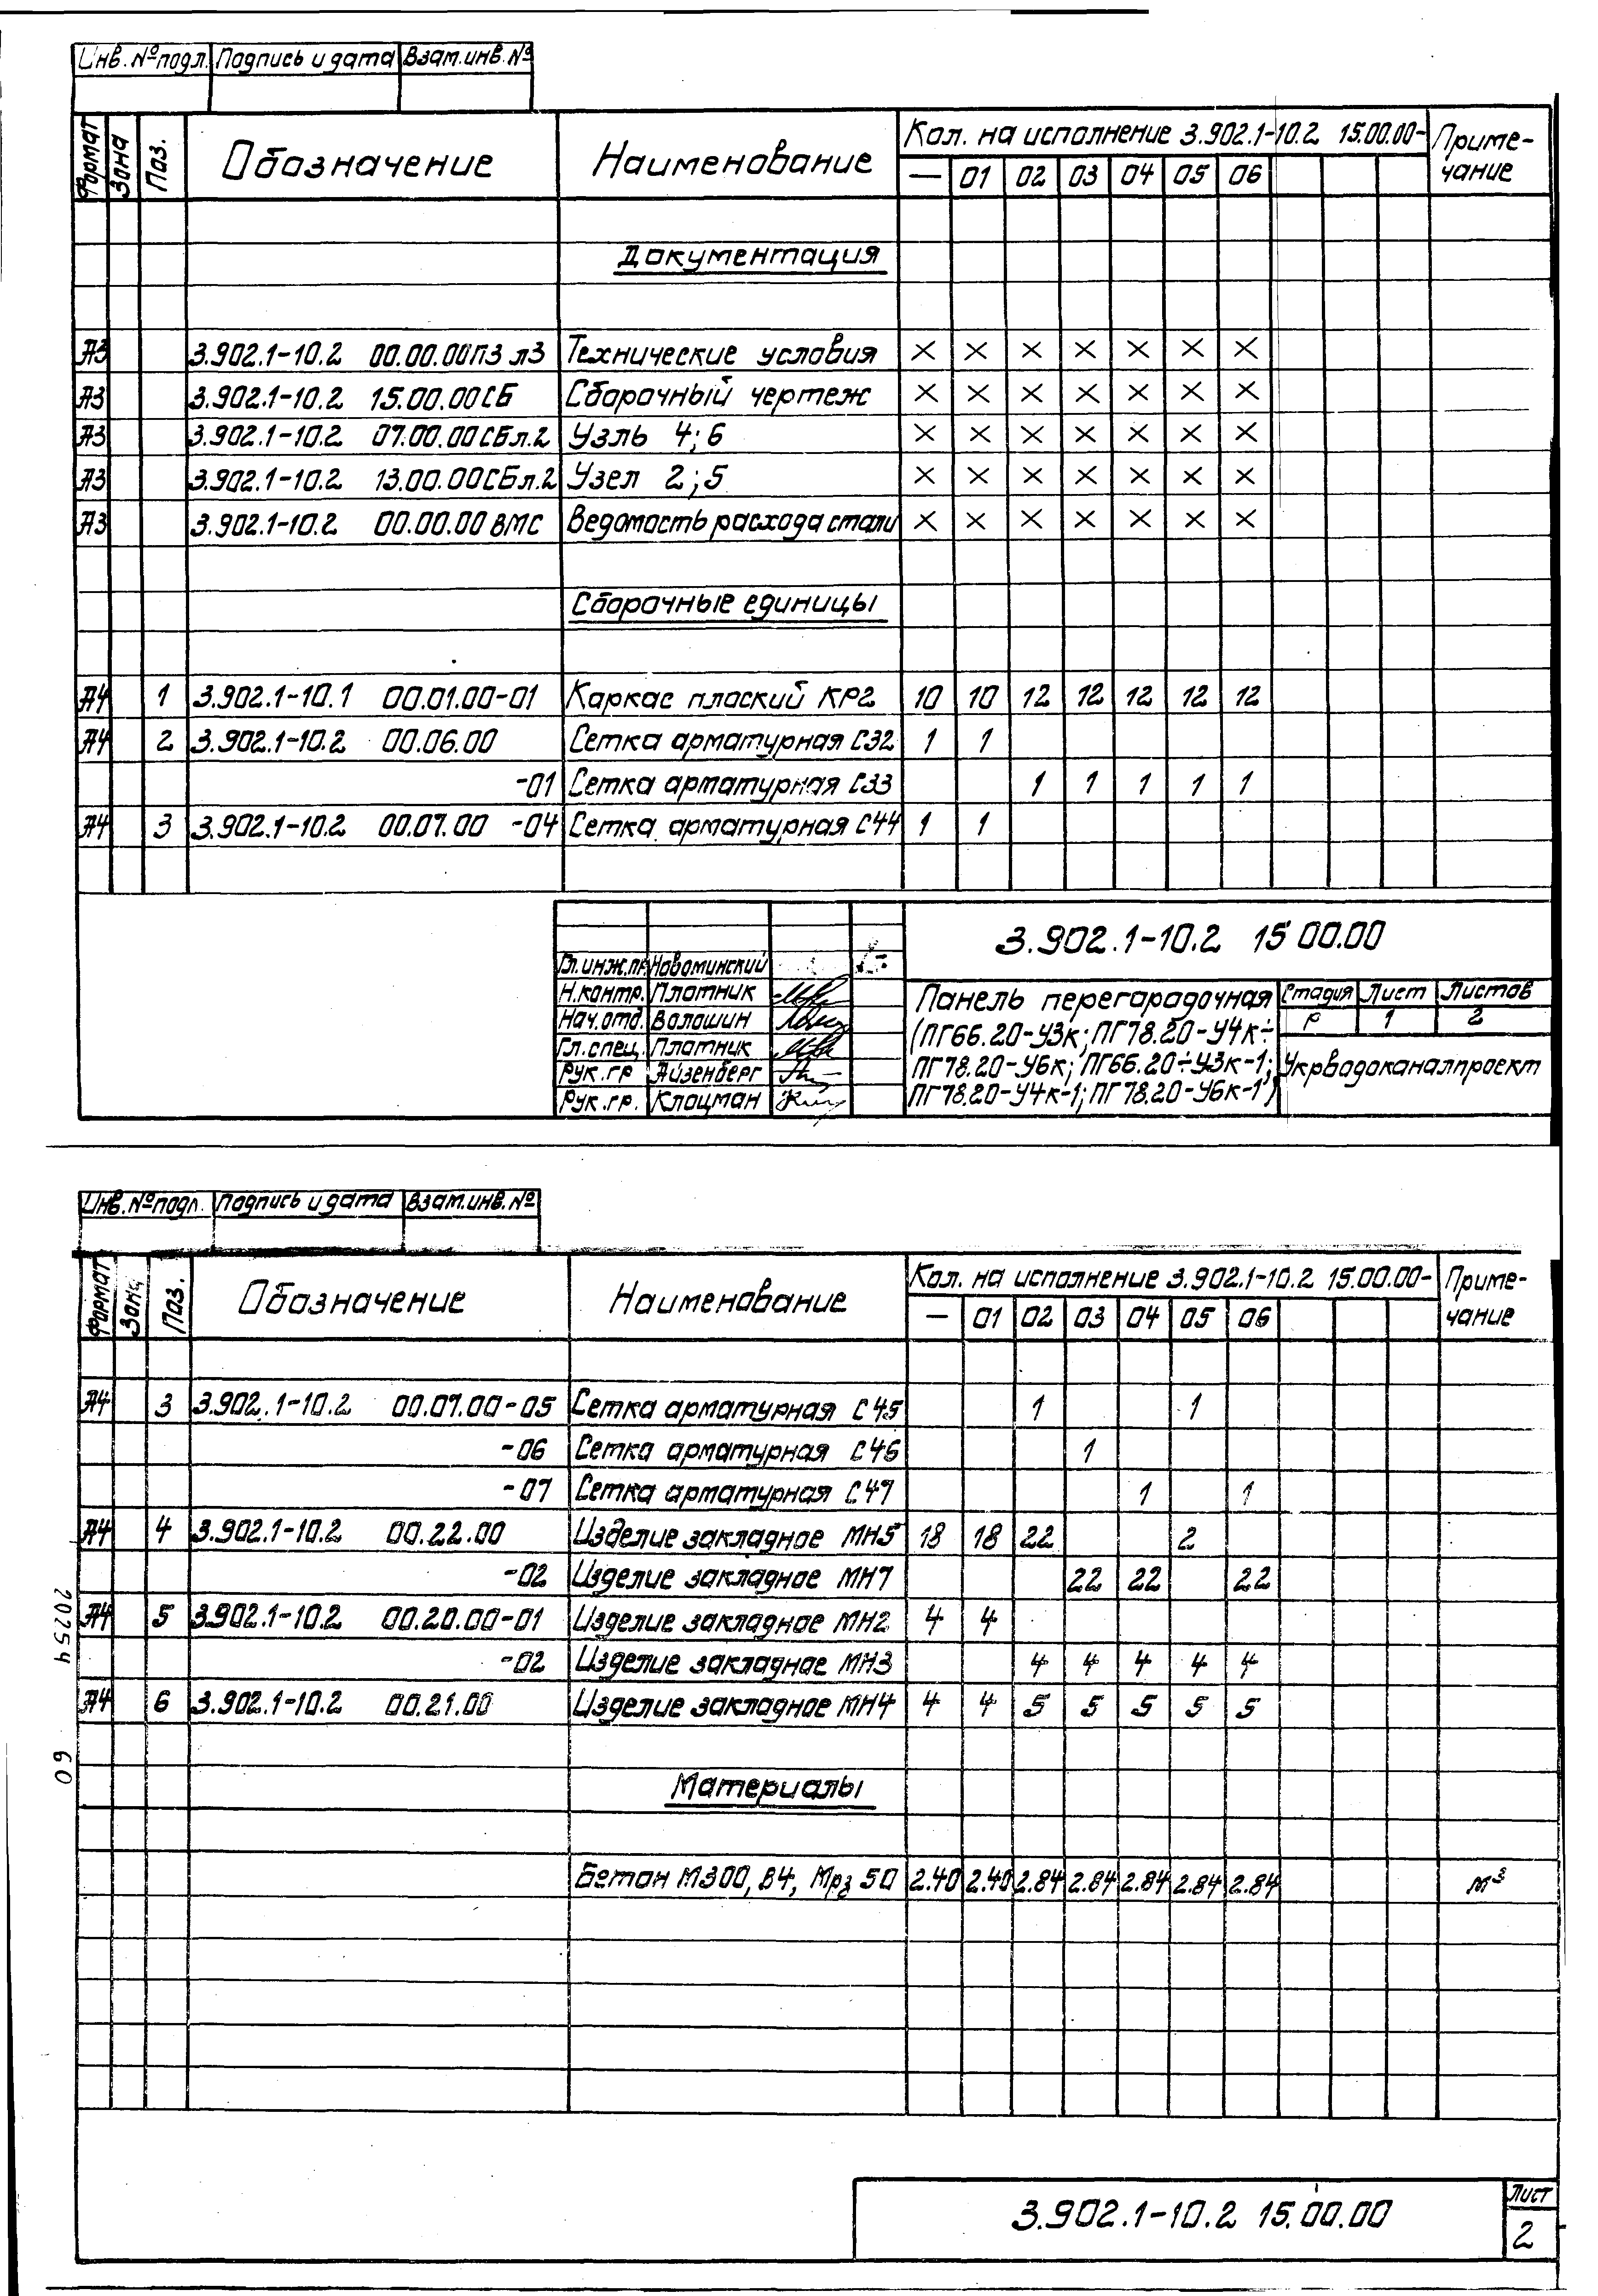 Инв. № подл. Подпись и дата Взам. инв. №
Формат Зона Поз. Обозначение Наименование Кол. на исполнение 3.902.1-10.2 15.00.00- Приме-
чание
— 01 02 03 04 05 06
Документация
А3 3.902.1-10.2 00.00.00ПЗ л3 Технические условия × × × × × × ×
А3 3.902.1-10.2 15.00.00СБ Сборочный чертеж × × × × × × ×
А3 3.902.1-10.2 07.00.00СБл.2 Узлы 4; 6 × × × × × × ×
А3 3.902.1-10.2 13.00.00СБл.2 Узел 2; 5 × × × × × × ×
А3 3.902.1-10.2 00.00.00 ВМС Ведомость расхода стали × × × × × × ×
Сборочные единицы
А4 1 3.902.1-10.1 00.01.00-01 Каркас плоский КР2 10 10 12 12 12 12 12
А4 2 3.902.1-10.2 00.06.00 Сетка арматурная С32 1 1
-01 Сетка арматурная С33 1 1 1 1 1
А4 3 3.902.1-10.2 00.07.00 -04 Сетка арматурная С44 1 1
3.902.1-10.2 15 00.00
Гл. инж. пр. Новоминский
Н. контр. Плотник
Нач. отд. Волошин
Гл. спец. Плотник
Рук. гр Айзенберг
Рук. гр. Клоцман
Панель перегородочная
(ПГ66.20-У3к; ПГ78.20-У4к÷
ПГ78.20-У6к; ПГ66.20÷У3к-1;
ПГ78.20-У4к-1; ПГ78.20-У6к-1)
Стадия Лист Листов
Р 1 2
Укрводоканалпроект
Инв. № подл. Подпись и дата Взам. инв. №
Формат Зона Поз. Обозначение Наименование Кол. на исполнение 3.902.1-10.2 15.00.00- Приме-
чание
— 01 02 03 04 05 06
А4 3 3.902.1-10.2 00.07.00-05 Сетка арматурная С45 1 1
-06 Сетка арматурная С46 1
-07 Сетка арматурная С47 1 1
А4 4 3.902.1-10.2 00.22.00 Изделие закладное МН5 18 18 22 2
-02 Изделие закладное МН7 22 22 22
А4 5 3.902.1-10.2 00.20.00-01 Изделие закладное МН2 4 4
-02 Изделие закладное МН3 4 4 4 4 4
А4 6 3.902.1-10.2 00.21.00 Изделие закладное МН4 4 4 5 5 5 5 5
Материалы
Бетон М300, В4, Мрз 50 2.40 2.40 2.84 2.84 2.84 2.84 2.84 м³
20254 60
3.902.1-10.2 15.00.00
Лист
2